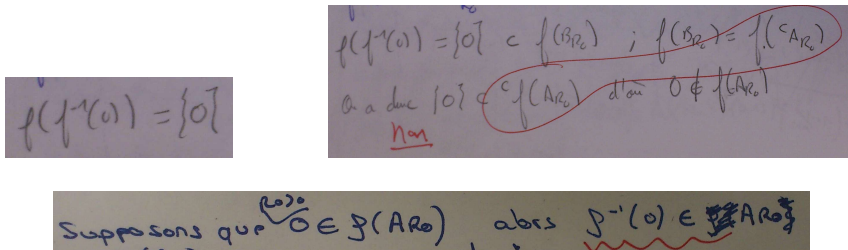 f(f⁻¹(0)) = {0} ⊂ f(B_R₀) ; f(B_R₀) = f(ᶜA_R₀)
f(f⁻¹(0)) = {0}
On a donc {0} ⊂ ᶜf(A_R₀) d'où 0 ∉ f(A_R₀)
Non
R₀>0
Supposons que 0 ∈ f(AR₀) alors f⁻¹(0) ∈ AR₀